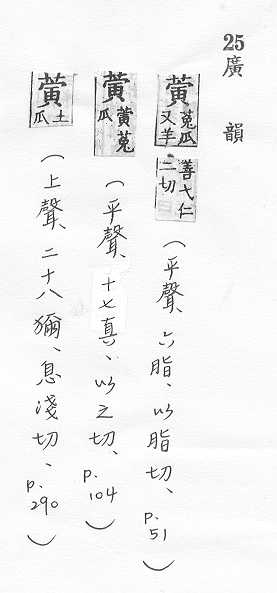 25 廣韻
蔩 菟瓜又羊善弋仁二切 (平聲、六脂、以脂切、p.51)
蔩 黃菟瓜 (平聲、十七真、以之切、p.104)
蔩 土瓜 (上聲、二十八獮、息淺切、p.290)